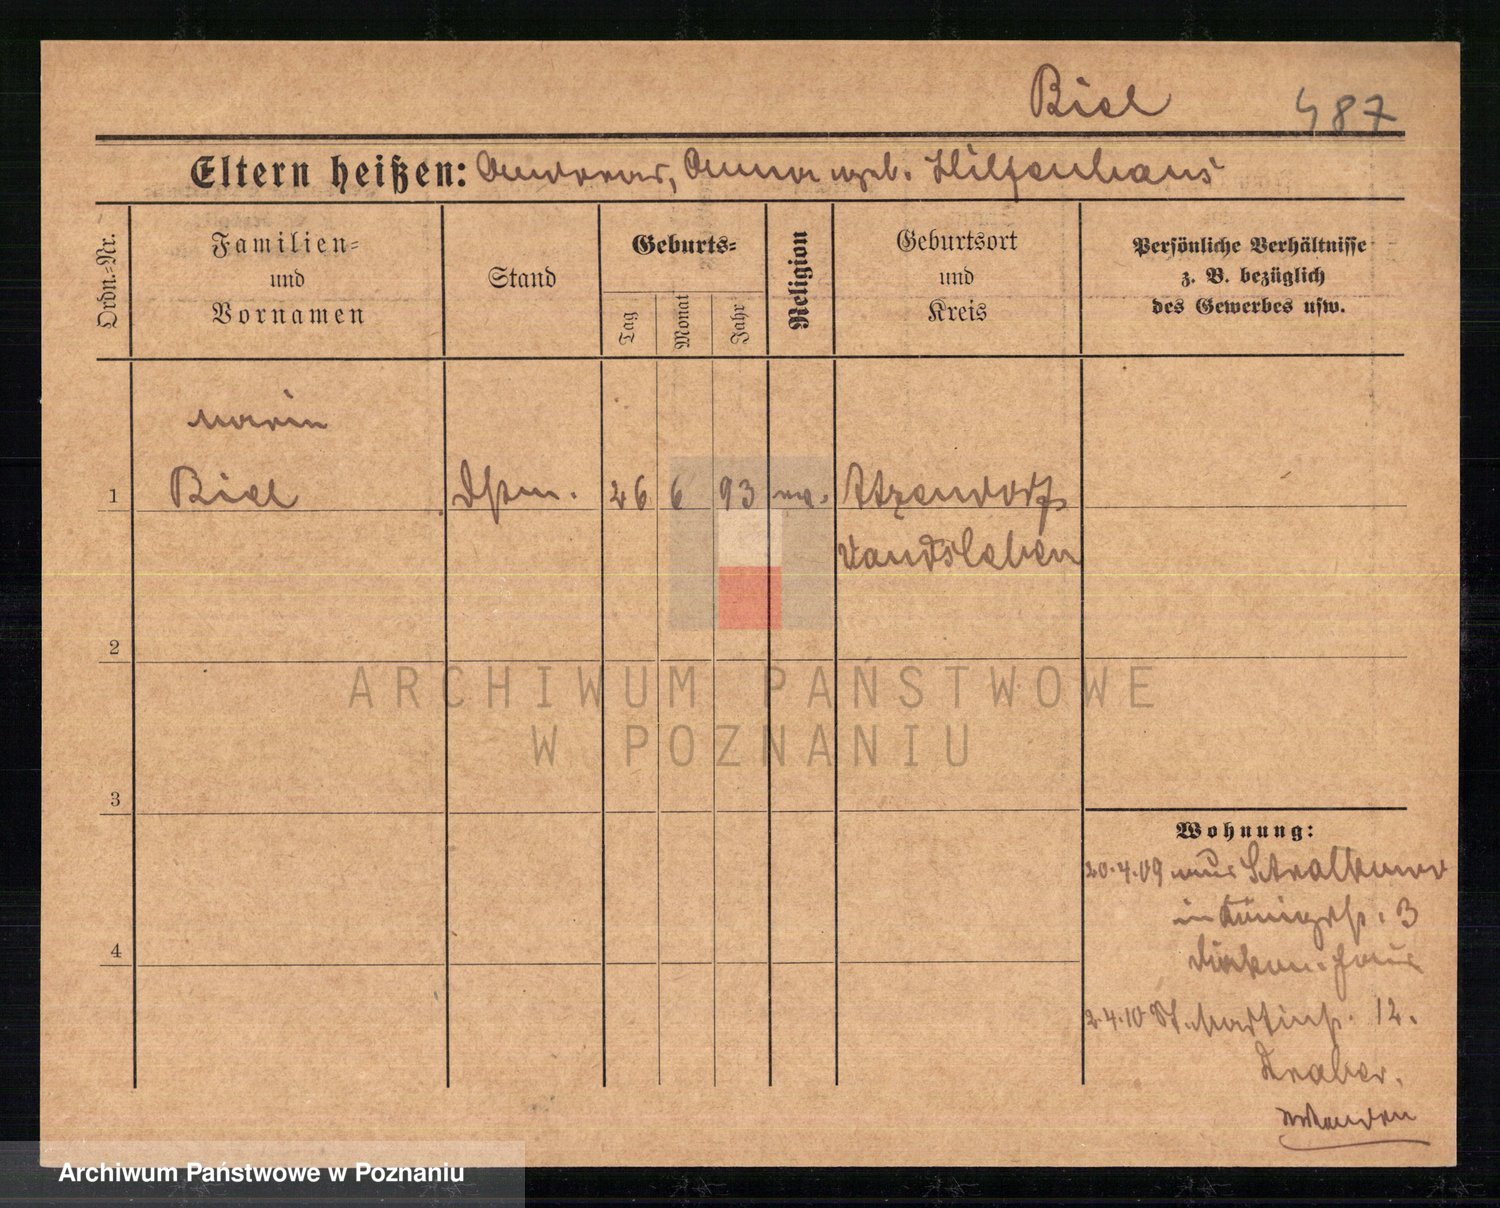 Biel 487
Eltern heißen: Andreas, Anna geb. Hilfenhaus
Ordn.-Nr.
Familien-
und
Vornamen
Stand
Geburts-
Tag
Monat
Jahr
Religion
Geburtsort
und
Kreis
Persönliche Verhältnisse
z. B. bezüglich
des Gewerbes usw.
Marie
1 Biel Dstm. 26 6 93 Atzendorf
2
3
4
Wohnung:
20.4.09 aus Stralkowo
in Königst. 3
2.4.10 St. Martinst. 12.
ARCHIWUM PAŃSTWOWE
W POZNANIU
Archiwum Państwowe w Poznaniu